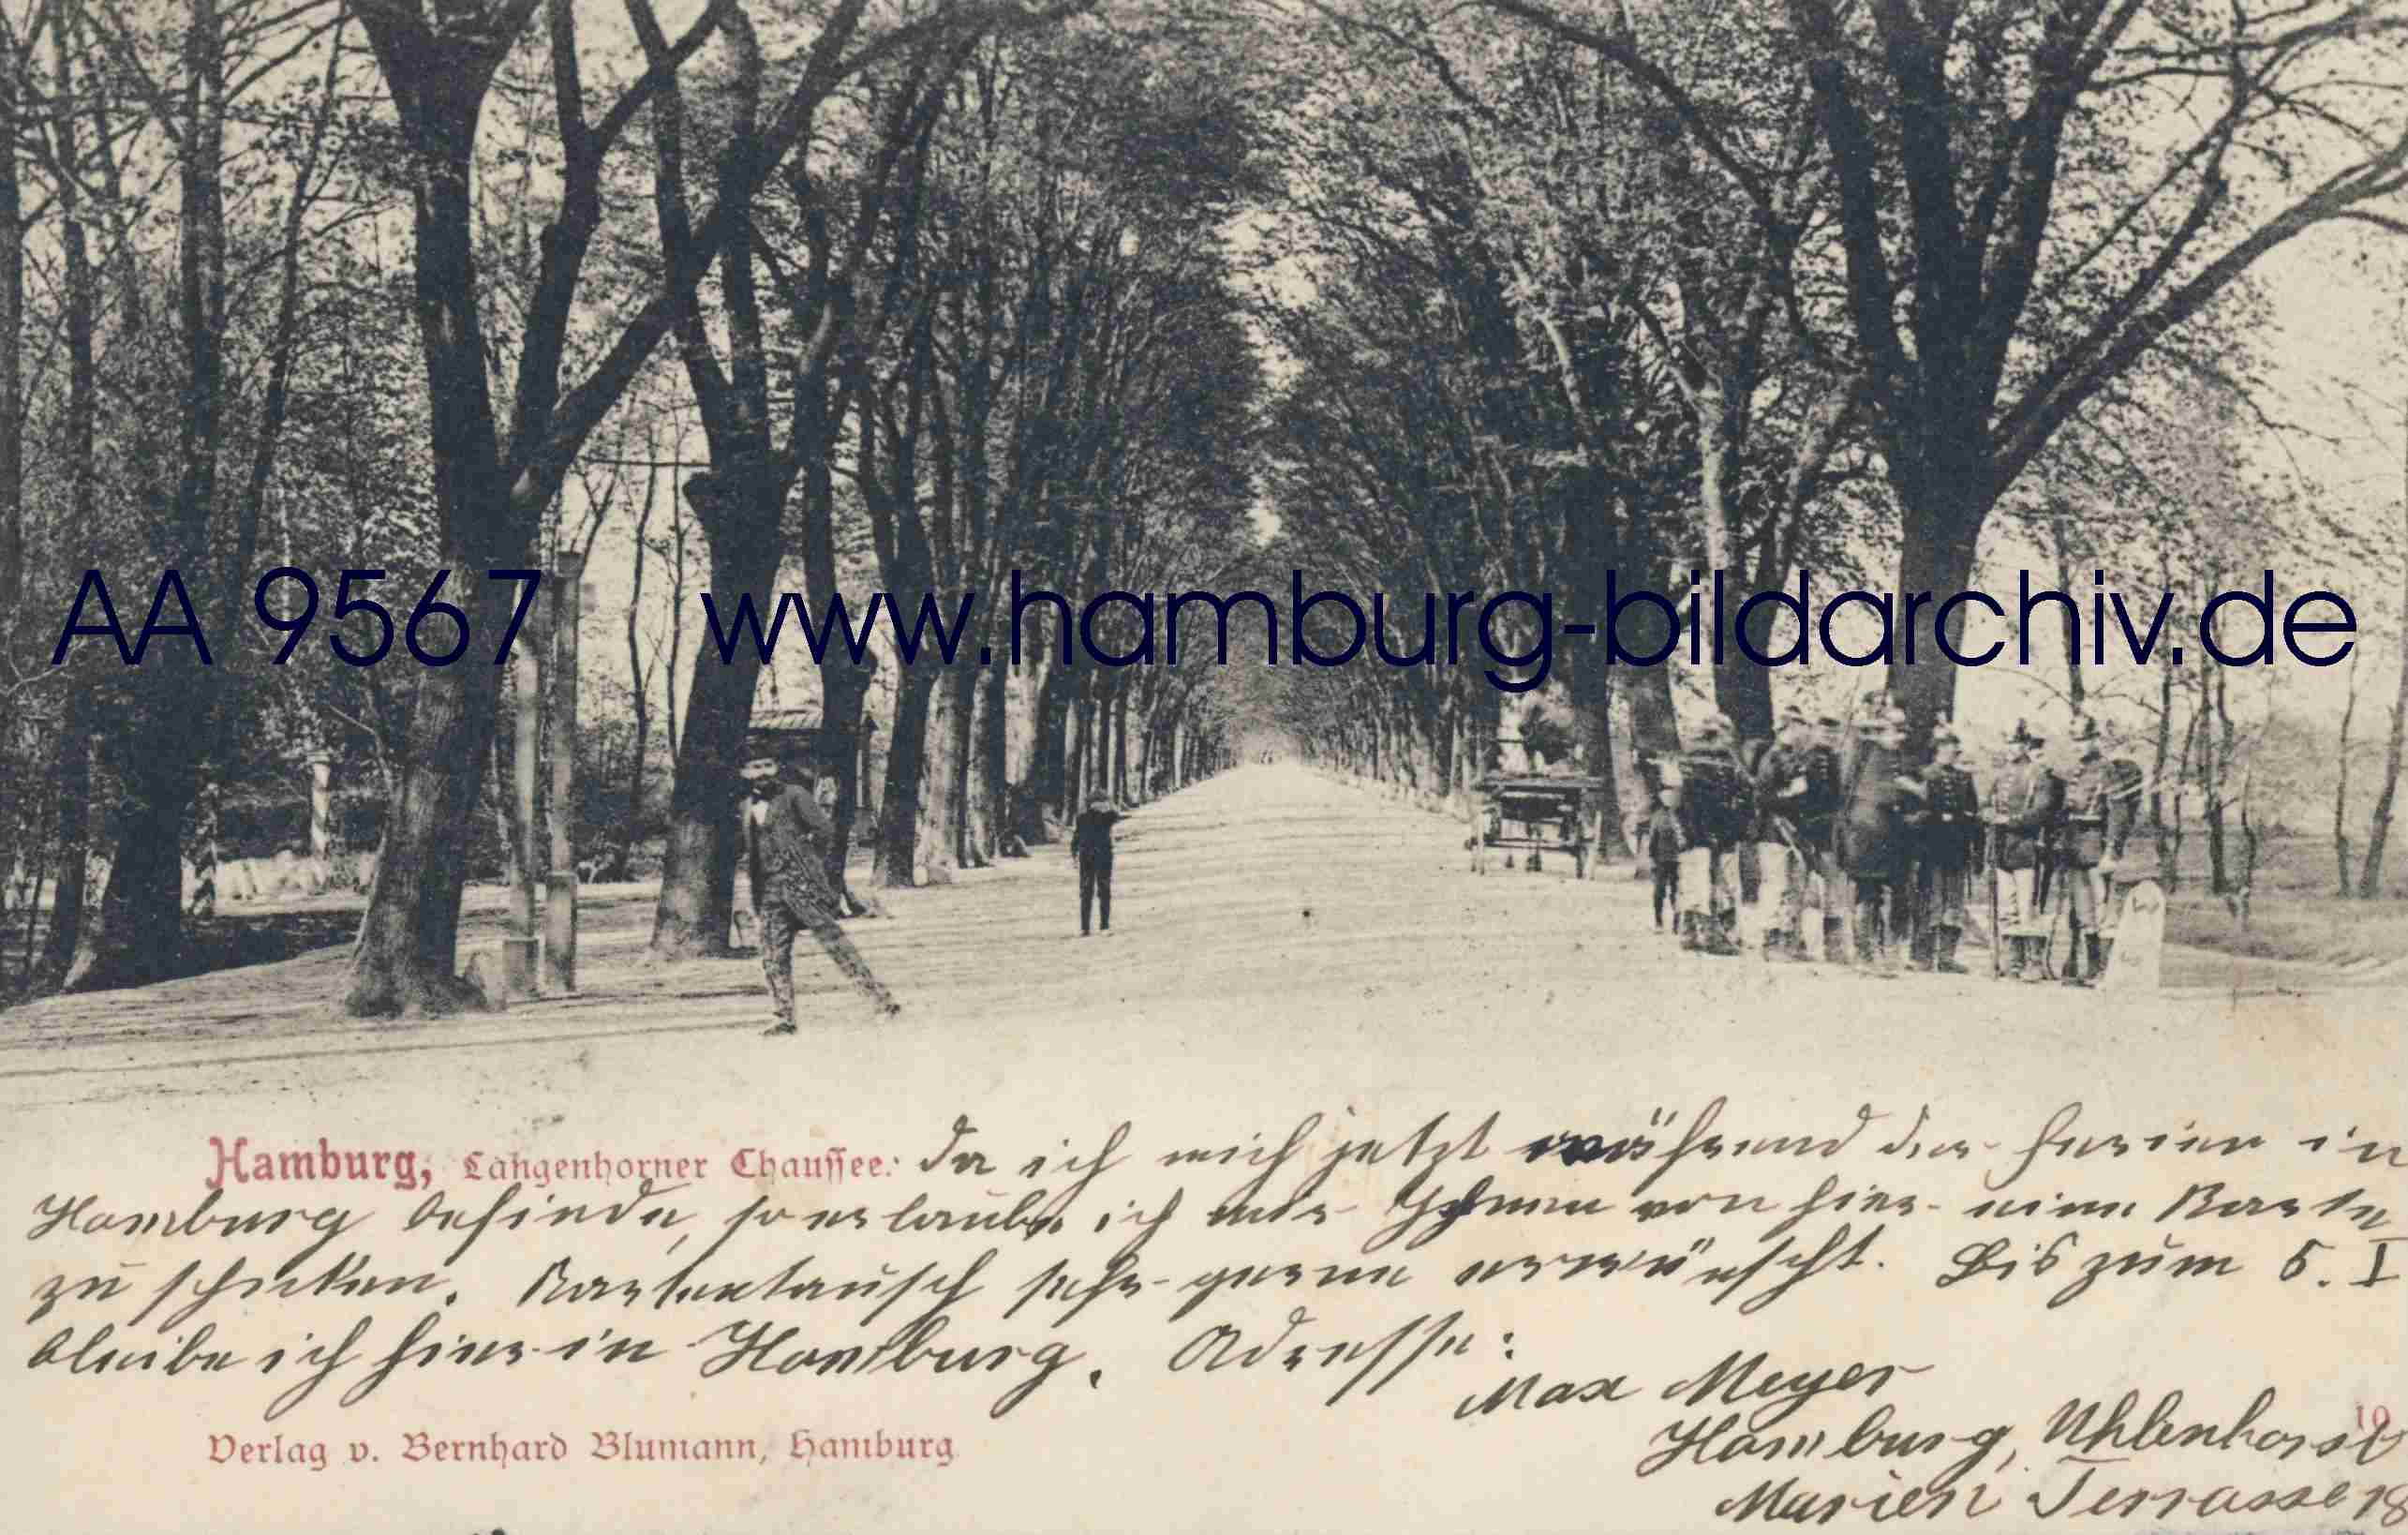 AA 9567 www.hamburg-bildarchiv.de
Hamburg, Langenhorner Chaussee. Da ich mich jetzt während der Ferien in
Hamburg befinde, so erlaube ich mir Ihnen von hier eine Karte
zu schicken. Kartentausch sehr gerne erwünscht. Bis zum 5. I
bleibe ich hier in Hamburg. Adresse:
Max Meyer
Hamburg, Uhlenhorst
Marien Terrasse 18
Verlag v. Bernhard Blumann, Hamburg